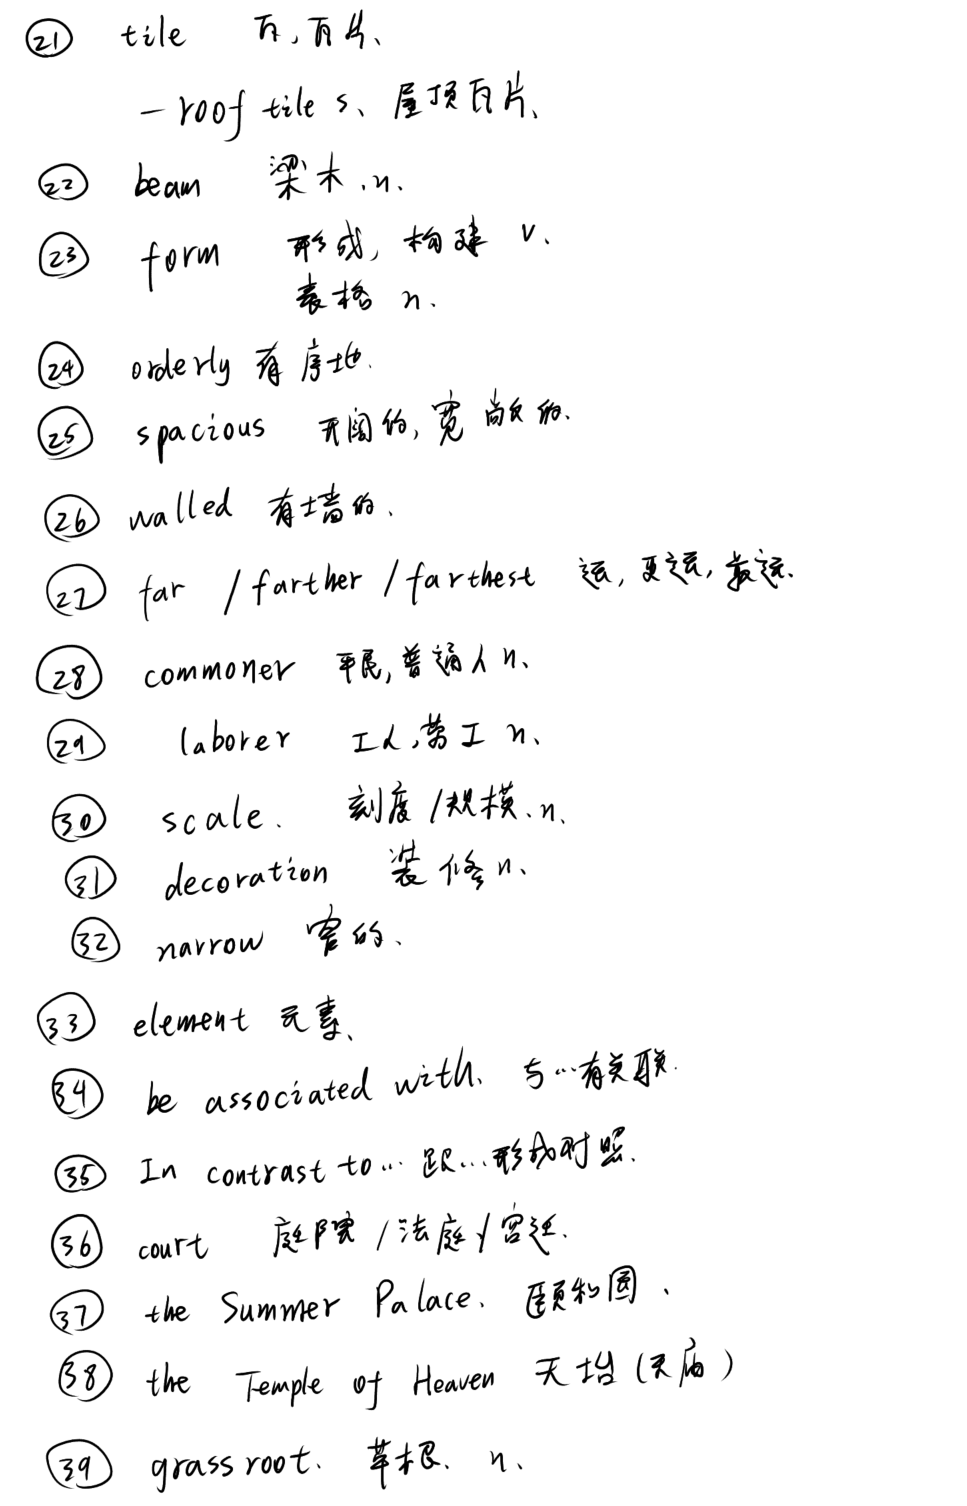 21 tile 瓦,瓦片、
—roof tiles、屋顶瓦片、
22 beam 梁木.n.
23 form 形成,构建 v.
表格 n.
24 orderly 有序地.
25 spacious 开阔的,宽敞的.
26 walled 有墙的.
27 far /farther /farthest 远,更远,最远.
28 commoner 平民,普通人 n、
29 laborer 工人,劳工 n、
30 scale. 刻度/规模.n.
31 decoration 装修n、
32 narrow 窄的、
33 element 元素、
34 be associated with、与…有关联.
35 In contrast to… 跟…形成对照.
36 court 庭院/法庭/宫廷.
37 the Summer Palace. 颐和园、
38 the Temple of Heaven 天坛(天庙)
39 grassroot. 草根. n.